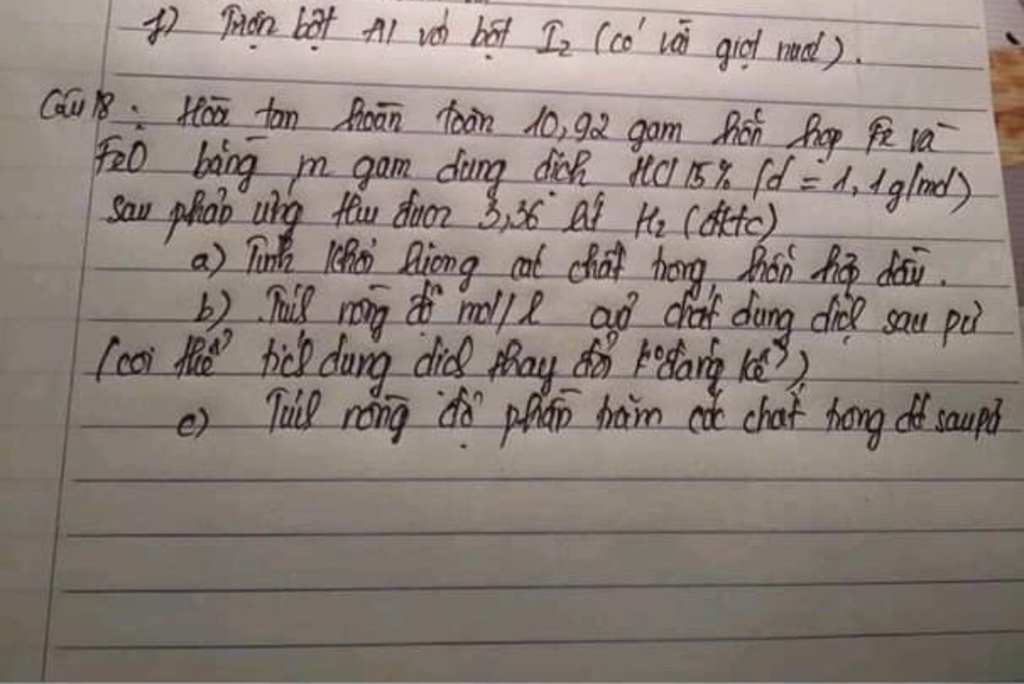 f) Trộn bột Al với bột I2 (có vài giọt nước).
Câu 18: Hòa tan hoàn toàn 10,92 gam hỗn hợp Fe và
FeO bằng m gam dung dịch HCl 15% (d = 1,1g/ml)
sau phản ứng thu được 3,36 lít H2 (đktc)
a) Tính khối lượng các chất trong hỗn hợp đầu.
b) Tính nồng độ mol/l chất dung dịch sau pư
(coi thể tích dung dịch thay đổi k° đáng kể)
c) Tính nồng độ phần trăm các chất trong dd sau pư